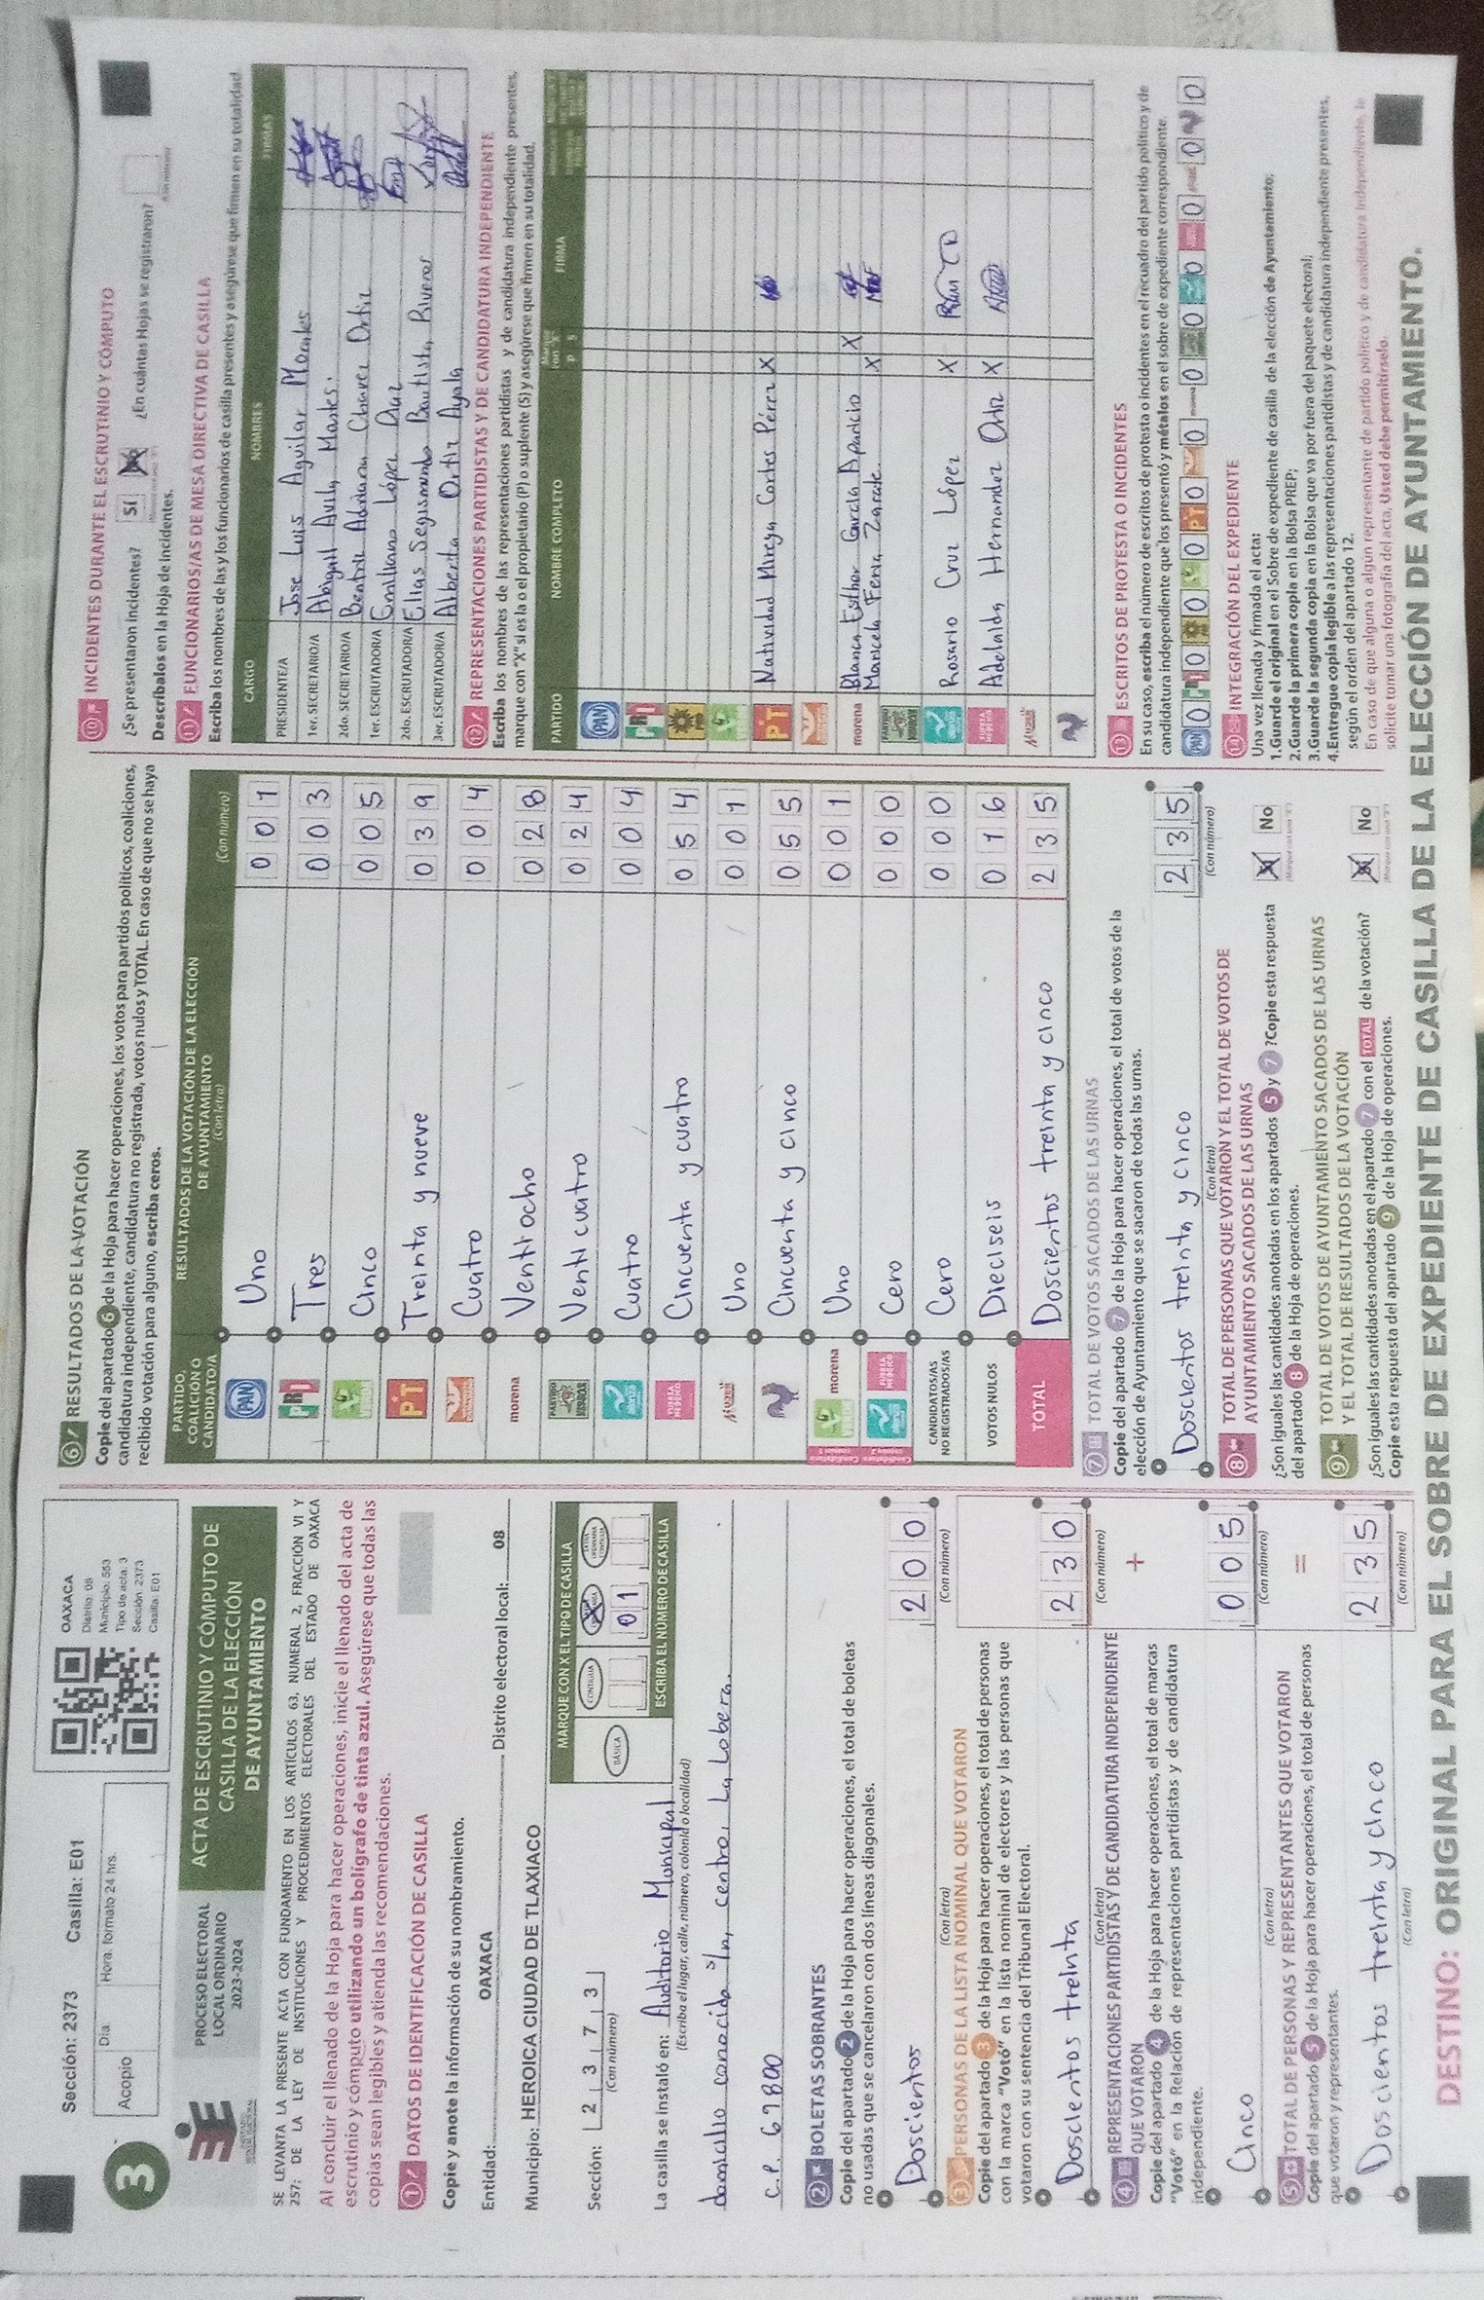 Sección: 2373 Casilla: E01
Acopio
Día
Hora: formato 24 hrs.
OAXACA
Distrito: 08
Municipio: 553
Tipo de acta: 3
Sección: 2373
Casilla: E01
3
PROCESO ELECTORAL
LOCAL ORDINARIO
2023-2024
ACTA DE ESCRUTINIO Y CÓMPUTO DE
CASILLA DE LA ELECCIÓN
DE AYUNTAMIENTO
SE LEVANTA LA PRESENTE ACTA CON FUNDAMENTO EN LOS ARTÍCULOS 63, NUMERAL 2, FRACCIÓN VI Y
257; DE LA LEY DE INSTITUCIONES Y PROCEDIMIENTOS ELECTORALES DEL ESTADO DE OAXACA
Al concluir el llenado de la Hoja para hacer operaciones, inicie el llenado del acta de
escrutinio y cómputo utilizando un bolígrafo de tinta azul. Asegúrese que todas las
copias sean legibles y atienda las recomendaciones.
1 DATOS DE IDENTIFICACIÓN DE CASILLA
Copie y anote la información de su nombramiento.
Entidad: OAXACA Distrito electoral local: 08
Municipio: HEROICA CIUDAD DE TLAXIACO
Sección: 2 3 7 3
(Con número)
MARQUE CON X EL TIPO DE CASILLA
BÁSICA
CONTIGUA
01
ESCRIBA EL NÚMERO DE CASILLA
La casilla se instaló en: Auditorio Municipal
(Escriba el lugar, calle, número, colonia o localidad)
domicilio conocido s/n, centro, La Lobera.
C.P. 69800
2 BOLETAS SOBRANTES
Copie del apartado 2 de la Hoja para hacer operaciones, el total de boletas
no usadas que se cancelaron con dos líneas diagonales.
Doscientos 200
(Con letra) (Con número)
3 PERSONAS DE LA LISTA NOMINAL QUE VOTARON
Copie del apartado 3 de la Hoja para hacer operaciones, el total de personas
con la marca "Votó" en la lista nominal de electores y las personas que
votaron con su sentencia del Tribunal Electoral.
Doscientos treinta 230
(Con letra) (Con número)
4 REPRESENTACIONES PARTIDISTAS Y DE CANDIDATURA INDEPENDIENTE
QUE VOTARON
+
Copie del apartado 4 de la Hoja para hacer operaciones, el total de marcas
"Votó" en la Relación de representaciones partidistas y de candidatura
independiente.
Cinco 005
(Con letra) (Con número)
5 TOTAL DE PERSONAS Y REPRESENTANTES QUE VOTARON
=
Copie del apartado 5 de la Hoja para hacer operaciones, el total de personas
que votaron y representantes.
Doscientos treinta y cinco 235
(Con letra) (Con número)
6 RESULTADOS DE LA VOTACIÓN
Copie del apartado 6 de la Hoja para hacer operaciones, los votos para partidos políticos, coaliciones,
candidatura independiente, candidatura no registrada, votos nulos y TOTAL. En caso de que no se haya
recibido votación para alguno, escriba ceros.
PARTIDO,
COALICIÓN O
CANDIDATO/A
RESULTADOS DE LA VOTACIÓN DE LA ELECCIÓN
DE AYUNTAMIENTO
(Con letra) (Con número)
PAN Uno 001
PRI Tres 003
Cinco 005
PT Treinta y nueve 039
Cuatro 004
morena Venti ocho 028
Venti cuatro 024
Cuatro 004
FUERZA MÉXICO Cincuenta y cuatro 054
MUJER Uno 001
Cincuenta y cinco 055
morena Uno 001
Cero 000
CANDIDATOS/AS
NO REGISTRADOS/AS Cero 000
VOTOS NULOS Dieciseis 016
TOTAL Doscientos treinta y cinco 235
7 TOTAL DE VOTOS SACADOS DE LAS URNAS
Copie del apartado 7 de la Hoja para hacer operaciones, el total de votos de la
elección de Ayuntamiento que se sacaron de todas las urnas.
Doscientos treinta y cinco 235
(Con letra) (Con número)
8 TOTAL DE PERSONAS QUE VOTARON Y EL TOTAL DE VOTOS DE
AYUNTAMIENTO SACADOS DE LAS URNAS
¿Son iguales las cantidades anotadas en los apartados 5 y 7? Copie esta respuesta
del apartado 8 de la Hoja de operaciones.
No
9 TOTAL DE VOTOS DE AYUNTAMIENTO SACADOS DE LAS URNAS
Y EL TOTAL DE RESULTADOS DE LA VOTACIÓN
¿Son iguales las cantidades anotadas en el apartado 7 con el TOTAL de la votación?
Copie esta respuesta del apartado 9 de la Hoja de operaciones.
No
10 INCIDENTES DURANTE EL ESCRUTINIO Y CÓMPUTO
¿Se presentaron incidentes? Sí ¿En cuántas Hojas se registraron?
Descríbalos en la Hoja de Incidentes.
11 FUNCIONARIOS/AS DE MESA DIRECTIVA DE CASILLA
Escriba los nombres de las y los funcionarios de casilla presentes y asegúrese que firmen en su totalidad.
CARGO NOMBRES FIRMAS
PRESIDENTE/A Jose Luis Aguilar Morales
1er. SECRETARIO/A Abigail Avila Mastes.
2do. SECRETARIO/A Beatriz Adriana Chavez Ortiz
1er. ESCRUTADOR/A Emiliano López Diaz
2do. ESCRUTADOR/A Elias Segismundo Bautista Riveros
3er. ESCRUTADOR/A Alberita Ortiz Ayala
12 REPRESENTACIONES PARTIDISTAS Y DE CANDIDATURA INDEPENDIENTE
Escriba los nombres de las representaciones partidistas y de candidatura independiente presentes,
marque con "X" si es la o el propietario (P) o suplente (S) y asegúrese que firmen en su totalidad.
PARTIDO NOMBRE COMPLETO FIRMA
PAN
PRI
PT Natividad Mireya Cortes Pérez X
morena Blanca Esther García Aparicio X
Maricela Feria Zarate X
Rosario Cruz López X
Adelaida Hernandez Ortiz X
13 ESCRITOS DE PROTESTA O INCIDENTES
En su caso, escriba el número de escritos de protesta o incidentes en el recuadro del partido político y de
candidatura independiente que los presentó y métalos en el sobre de expediente correspondiente.
PAN 0 PRI 0 0 0 PT 0 0 morena 0 0 0 0 0 0
14 INTEGRACIÓN DEL EXPEDIENTE
Una vez llenada y firmada el acta:
1. Guarde el original en el Sobre de expediente de casilla de la elección de Ayuntamiento;
2. Guarde la primera copia en la Bolsa PREP;
3. Guarde la segunda copia en la Bolsa que va por fuera del paquete electoral;
4. Entregue copia legible a las representaciones partidistas y de candidatura independiente presentes,
según el orden del apartado 12.
En caso de que alguna o algun representante de partido político y de candidatura independiente, le
solicite tomar una fotografía del acta, Usted debe permitírselo.
DESTINO: ORIGINAL PARA EL SOBRE DE EXPEDIENTE DE CASILLA DE LA ELECCIÓN DE AYUNTAMIENTO.